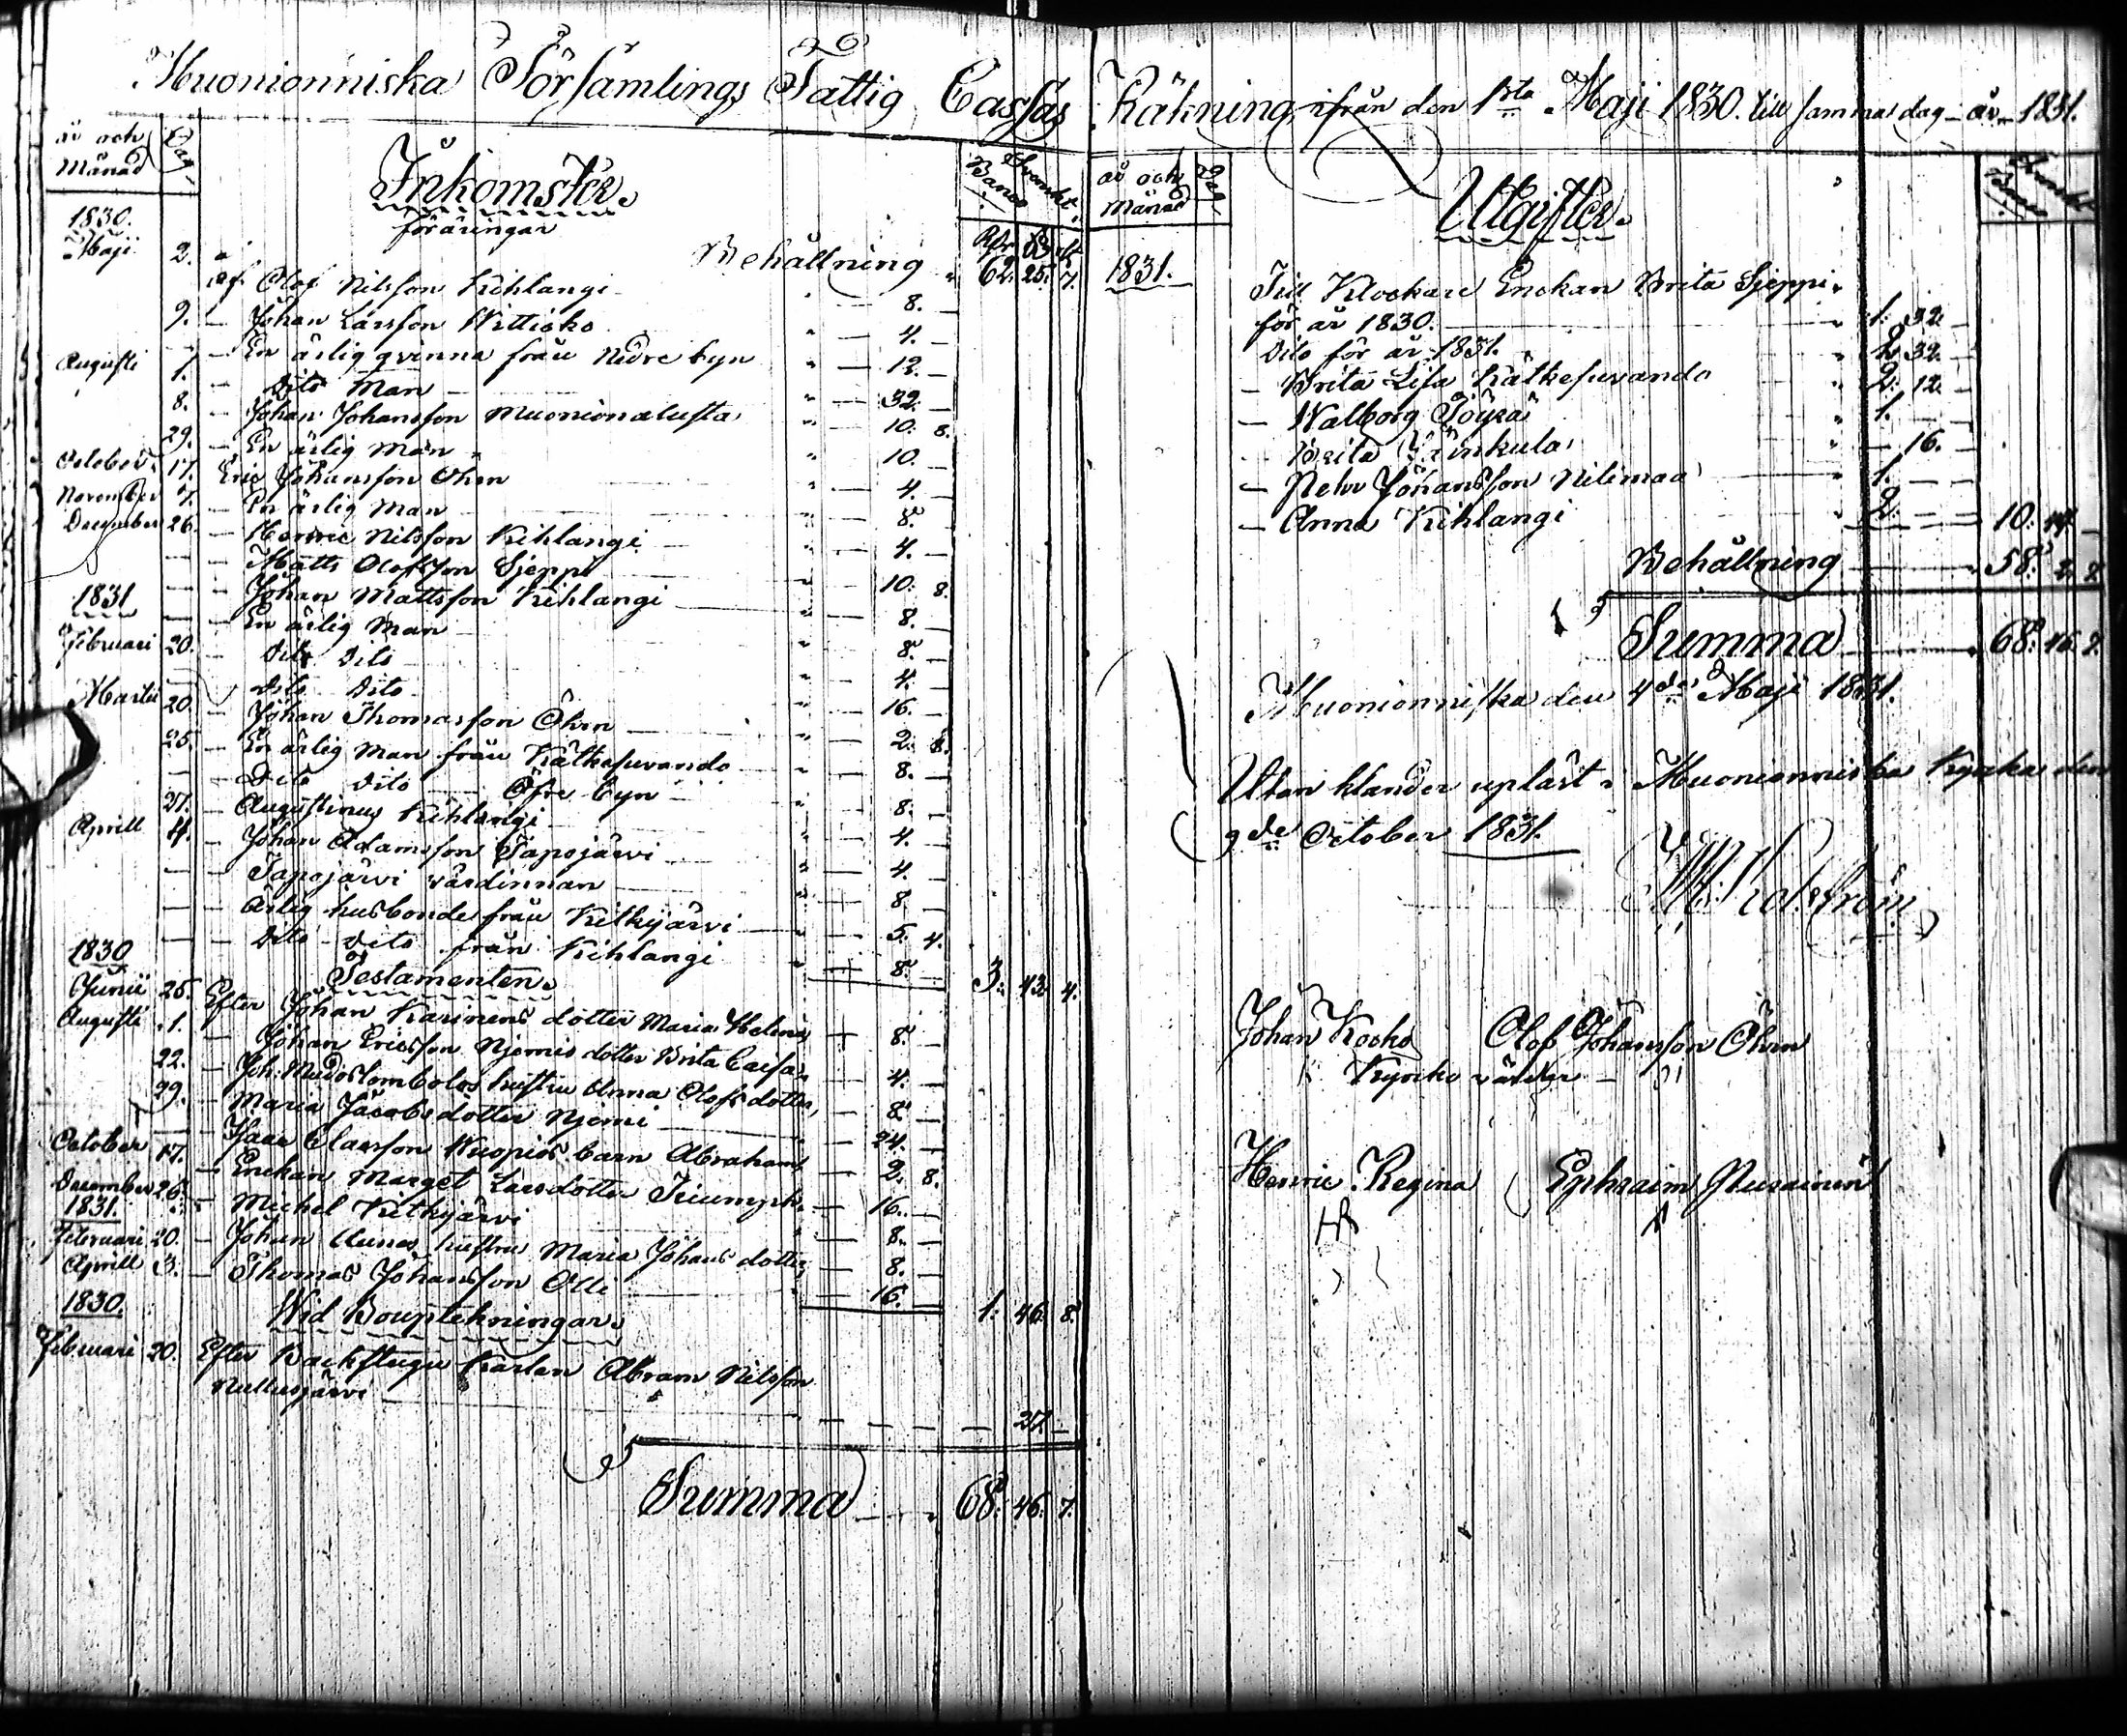 Muonionniska Församlings Fattig Cassas Räkning ifrån den 1sta Maji 1830. till samma dag år 1831.
år och Månad Dag
Inkomster.
föräringar
Svenskt Banco
Rdr ß rst
1830.
Maji 2. Behållning 62. 25. 7.
af Olof Nilsson Kihlangi 8. —
9. — Johan Larsson Witticko 4. —
— En ärlig qvinna från Nedre byn 12. —
Augusti 1. — Dito Man 32. —
8. — Johan Johansson Muonionalusta 10. 8.
29. — En ärlig Man 10. —
October 17. Eric Johansson Öhrn 4. —
November 7. — En ärlig Man 8. —
December 26. — Henric Nilsson Kihlangi 4. —
— Matts Olofsson Sjeppi 10. 8.
— Johan Mattsson Kihlangi 8. —
1831
— En ärlig Man 8. —
Februari 20. — Dito Dito 4. —
— Dito Dito 16. —
Martii 20. — Johan Thomasson Öhrn 2. 8.
25. — En ärlig Man från Kätkesuvando 8. —
— Dito Dito Öfre byn 8. —
27. — Augustinus Kihlangi 4. —
Aprill 4. — Johan Adamsson Tapojärvi 4. —
— Tapojärvi värdinnan 8. —
— Ärlig husbonde från Kitkijärvi 5. 4.
— Dito Dito från Kihlangi 8. — 3. 43. 4.
1830
Testamenten.
Junii 25. Efter Johan Karinens dotter Maria Helena 8. —
Augusti 1. — Johan Ericsson Njemis dotter Brita Caisa 4. —
22. — Joh. Mudoslombolos hustru Anna Olofsdotter 8. —
29. — Maria Jacobsdotter Njemi 24. —
— Isaac Classon Wuopios barn Abraham 2. 8.
October 17. — Enckan Marget Larsdotter Triumph 16. —
December 26. — Michel Kitkijärvi 8. —
1831.
Februari 20. — Johan hustru Maria Johansdotter 8. —
Aprill 3. — Thomas Johansson Olli 16. — 1. 46. 8.
1830.
Wid Bouptekningar.
Februari 20. Efter Backstugu Karlen Abram Nilsson
Mullusjärvi 27. —
Summa 68. 46. 7.
år och Månad Dag
Utgifter.
Svenskt Banco
1831.
Till Klockare Enckan Brita Sjeppi
för år 1830. 1. 32. —
Dito för år 1831. 32. —
— Brita Lisa Kätkesuvando 2. 12. —
— Walborg 1. — —
— Brita — 16. —
— Pehr Johansson Nilimaa 1. — —
— Anna Kihlangi 2. — — 10. 44. —
Behållning 58. 2. 7.
Summa 68. 46. 7.
Muonionniska den 4de Maji 1831.
Utan klander upläst i Muonionniska Kyrka den
9de October 1831.
Johan Kocko Olof Johansson Öhrn
Kyrko värdar
Henric Regina Ephraim